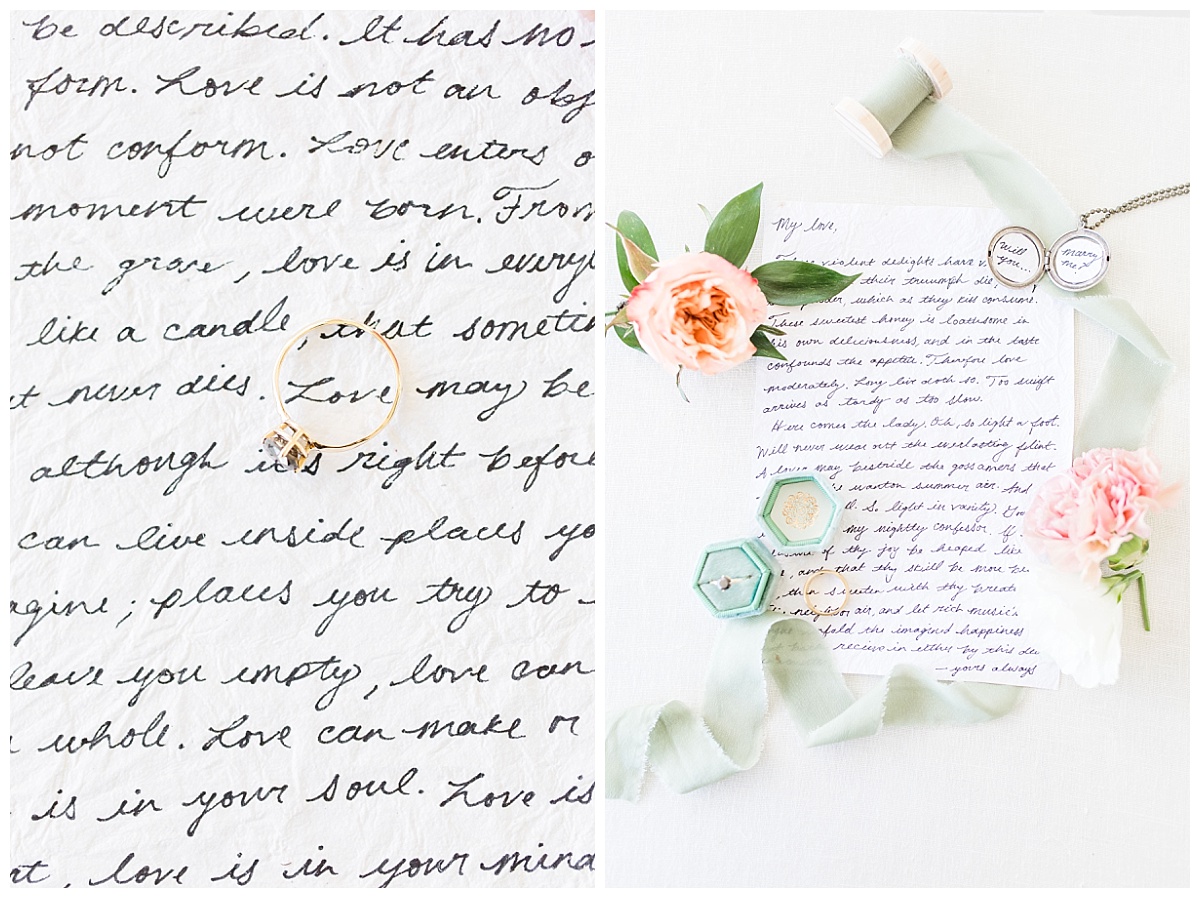 be described. It has no
form. Love is not an obj
not conform. Love enters
moment were born. From
the grave, love is in every
like a candle, that someti
t never dies. Love may be
although it's right before
can live inside places yo
agine; places you try to
leave you empty, love can
whole. Love can make or
is in your soul. Love is
, love is in your mind
My love,
These violent delights have
their triumph die,
powder, which as they kiss consume.
These sweetest honey is loathsome in
his own deliciousness, and in the taste
confounds the appetite. Therefore love
moderately. Long live doth so. Too swift
arrives as tardy as too slow.
Here comes the lady. Oh, so light a foot.
Will never wear out the everlasting flint.
A lover may bestride the gossamers that
wanton summer air. And
so light in vanity.
my nightly confessor. If
of thy joy be heaped like
that thy skill be more
then sweeten with thy breath
neighbor air, and let rich music's
unfold the imagined happiness
recieve in either by this
—yours always
Will
you...
marry
me?